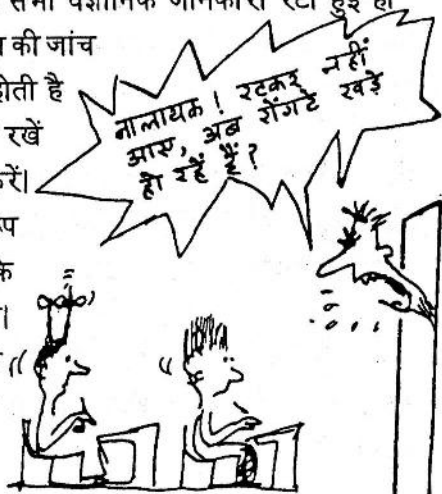 सभी वैज्ञानिक जानकारी रटी हुई हो
की जांच
होती है
रखें
करें।
के
नालायक ! रटकर नहीं
आए, अब रोंगटे खड़े
हो रहें हैं?